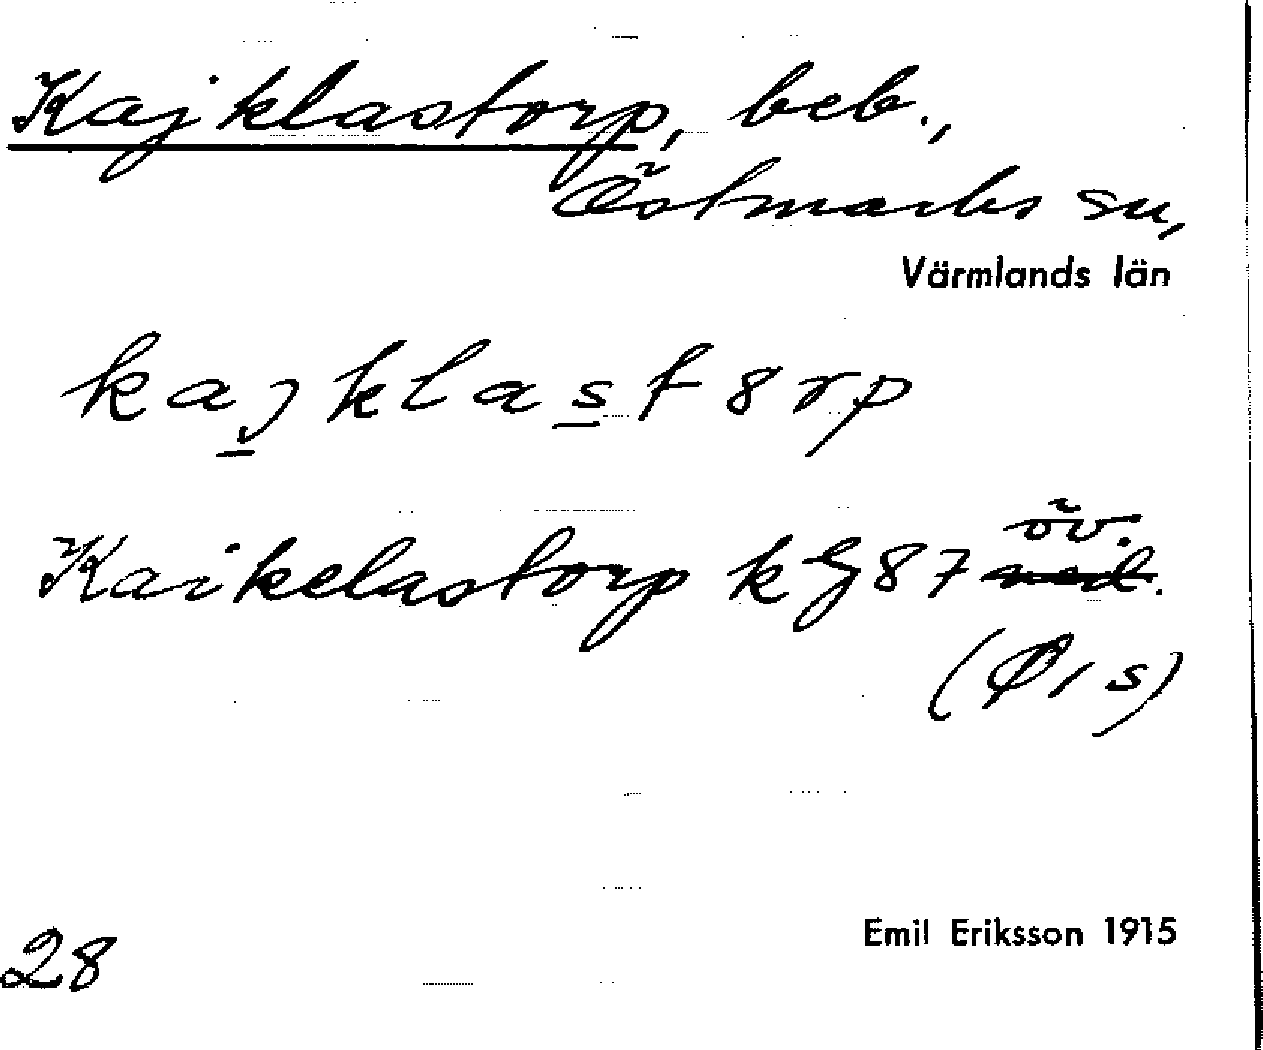 Kajklastorp, beb.,
Östmarks sn,
Värmlands län
kajklast8rp
öv.
Kaikelastorp kg 87
(Ø 1 s)
28
Emil Eriksson 1915